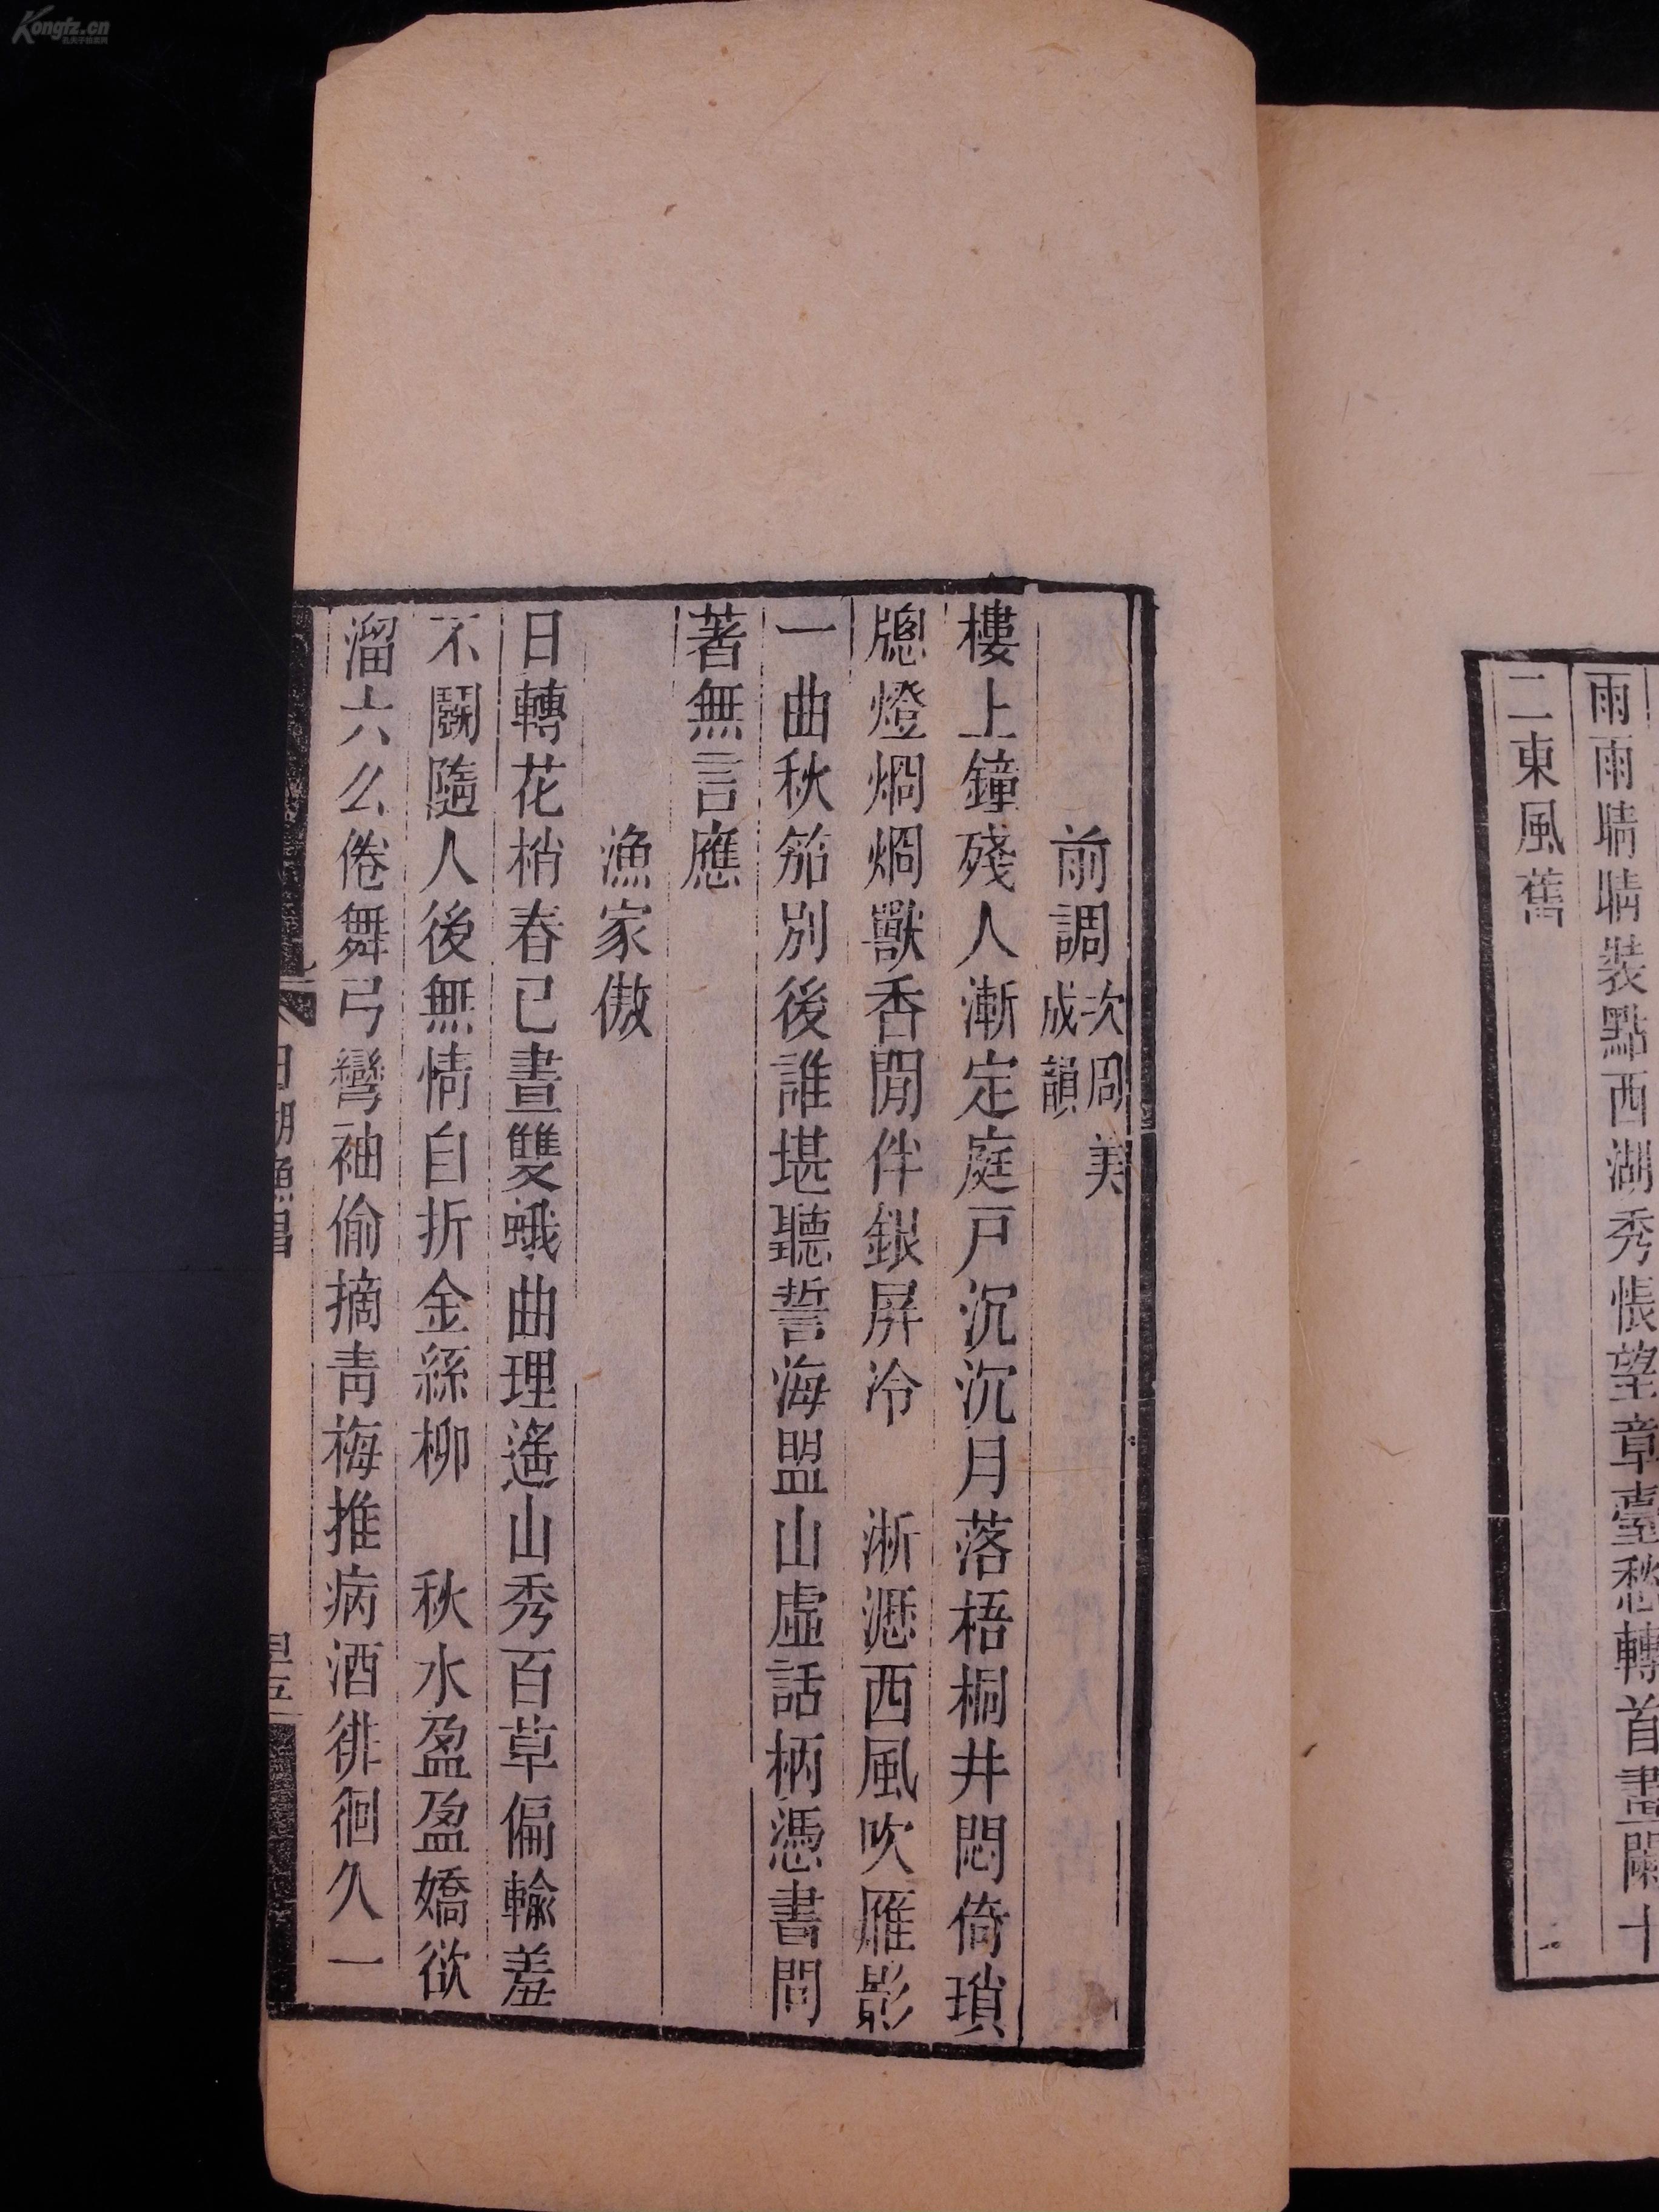 Kongfz.cn
雨雨晴晴裝點西湖秀悵望章臺愁轉首畫闌十
二東風舊
前調次周美成韻
樓上鐘殘人漸定庭戸沉沉月落梧桐井悶倚瑣
牕燈烱烱獸香閒伴銀屏冷 淅瀝西風吹雁影
一曲秋笳別後誰堪聽誓海盟山虛話柄憑書問
著無言應
漁家傲
日轉花梢春已晝雙蛾曲理遙山秀百草偏輸羞
不鬭隨人後無情自折金絲柳 秋水盈盈嬌欲
溜六么倦舞弓彎袖偷摘青梅推病酒徘徊久一